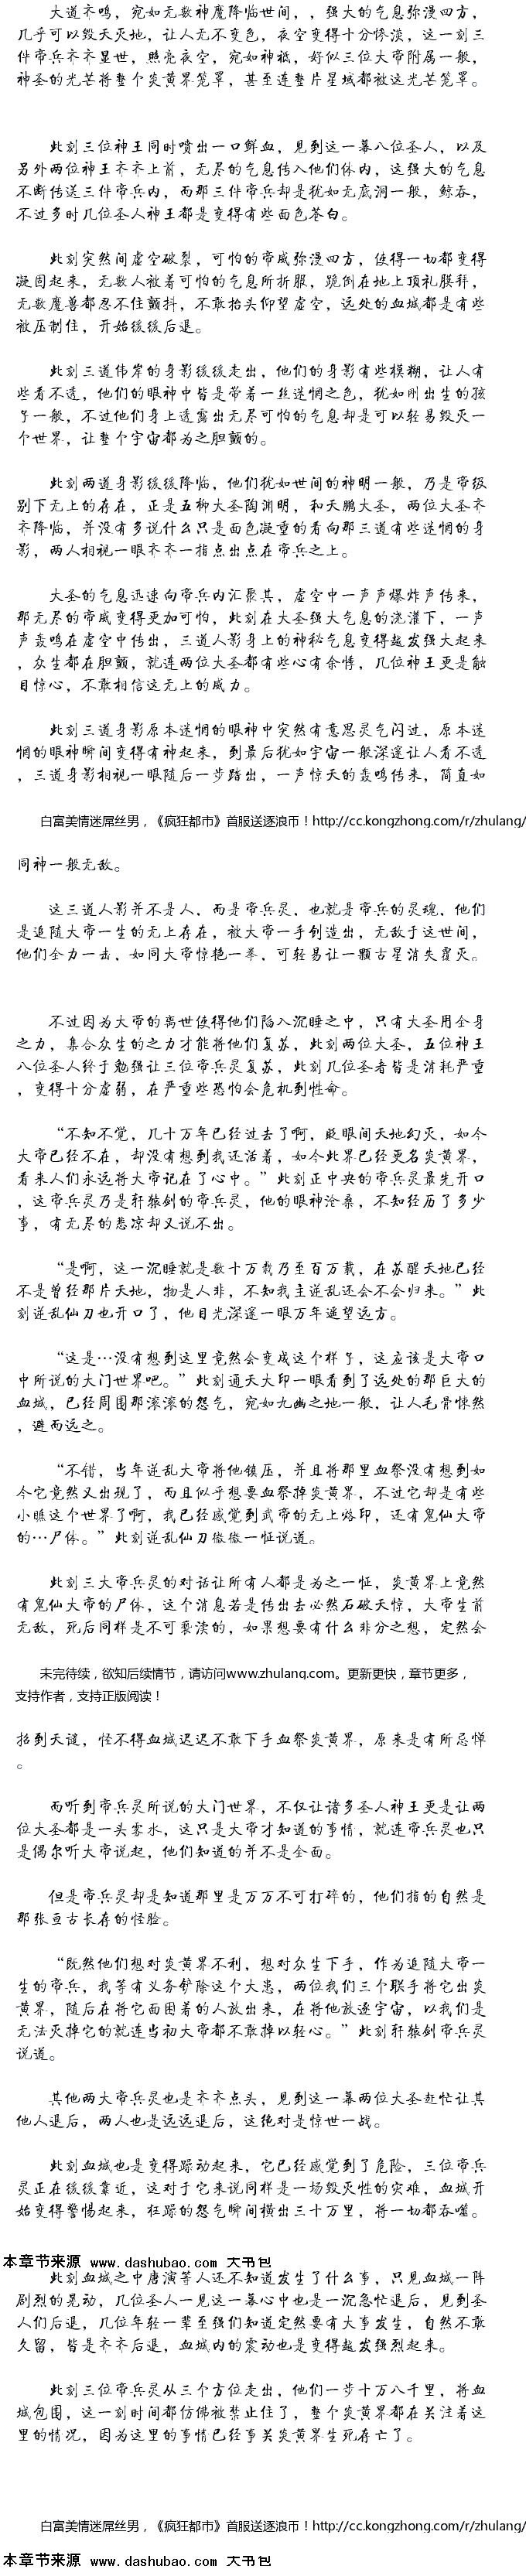 大道齐鸣，宛如无数神魔降临世间，，强大的气息弥漫四方，
几乎可以毁天灭地，让人无不变色，夜空变得十分惨淡，这一刻三
件帝兵齐齐显世，照亮夜空，宛如神祗，好似三位大帝附属一般，
神圣的光芒将整个炎黄界笼罩，甚至连整片星域都被这光芒笼罩。
此刻三位神王同时喷出一口鲜血，见到这一幕八位圣人，以及
另外两位神王齐齐上前，无尽的气息传入他们体内，这强大的气息
不断传送三件帝兵内，而那三件帝兵却是犹如无底洞一般，鲸吞，
不过多时几位圣人神王都是变得有些面色苍白。
此刻突然间虚空破裂，可怕的帝威弥漫四方，使得一切都变得
凝固起来，无数人被着可怕的气息所折服，跪倒在地上顶礼膜拜，
无数魔兽都忍不住颤抖，不敢抬头仰望虚空，远处的血城都是有些
被压制住，开始缓缓后退。
此刻三道伟岸的身影缓缓走出，他们的身影有些模糊，让人有
些看不透，他们的眼神中皆是带着一丝迷惘之色，犹如刚出生的孩
子一般，不过他们身上透露出无尽可怕的气息却是可以轻易毁灭一
个世界，让整个宇宙都为之胆颤的。
此刻两道身影缓缓降临，他们犹如世间的神明一般，乃是帝级
别下无上的存在，正是五柳大圣陶渊明，和天鹏大圣，两位大圣齐
齐降临，并没有多说什么只是面色凝重的看向那三道有些迷惘的身
影，两人相视一眼齐齐一指点出点在帝兵之上。
大圣的气息迅速向帝兵内汇聚其，虚空中一声声爆炸声传来，
那无尽的帝威变得更加可怕，此刻在大圣强大气息的浇灌下，一声
声轰鸣在虚空中传出，三道人影身上的神秘气息变得越发强大起来
，众生都在胆颤，就连两位大圣都有些心有余悸，几位神王更是触
目惊心，不敢相信这无上的威力。
此刻三道身影原本迷惘的眼神中突然有意思灵气闪过，原本迷
惘的眼神瞬间变得有神起来，到最后犹如宇宙一般深邃让人看不透
，三道身影相视一眼随后一步踏出，一声惊天的轰鸣传来，简直如
白富美情迷屌丝男，《疯狂都市》首服送逐浪币！http://cc.kongzhong.com/r/zhulang/
同神一般无敌。
这三道人影并不是人，而是帝兵灵，也就是帝兵的灵魂，他们
是追随大帝一生的无上存在，被大帝一手创造出，无敌于这世间，
他们全力一击，如同大帝惊艳一举，可轻易让一颗古星消失覆灭。
不过因为大帝的离世使得他们陷入沉睡之中，只有大圣用全身
之力，集合众生的之力才能将他们复苏，此刻两位大圣，五位神王
八位圣人终于勉强让三位帝兵灵复苏，此刻几位圣者皆是消耗严重
，变得十分虚弱，在严重些恐怕会危机到性命。
“不知不觉，几十万年已经过去了啊，眨眼间天地幻灭，如今
大帝已经不在，却没有想到我还活着，如今此界已经更名炎黄界，
看来人们永远将大帝记在了心中。”此刻正中央的帝兵灵最先开口
，这帝兵灵乃是轩辕剑的帝兵灵，他的眼神沧桑，不知经历了多少
事，有无尽的悲凉却又说不出。
“是啊，这一沉睡就是数十万载乃至百万载，在苏醒天地已经
不是曾经那片天地，物是人非，不知我主逆乱还会不会归来。”此
刻逆乱仙刀也开口了，他目光深邃一眼万年遥望远方。
“这是…没有想到这里竟然会变成这个样子，这应该是大帝口
中所说的大门世界吧。”此刻通天大印一眼看到了远处的那巨大的
血城，已经周围那滚滚的怨气，宛如九幽之地一般，让人毛骨悚然
，避而远之。
“不错，当年逆乱大帝将他镇压，并且将那里血祭没有想到如
今它竟然又出现了，而且似乎想要血祭掉炎黄界，不过它却是有些
小瞧这个世界了啊，我已经感觉到武帝的无上烙印，还有鬼仙大帝
的…尸体。”此刻逆乱仙刀微微一怔说道。
此刻三大帝兵灵的对话让所有人都是为之一怔，炎黄界上竟然
有鬼仙大帝的尸体，这个消息若是传出去必然石破天惊，大帝生前
无敌，死后同样是不可亵渎的，如果想要有什么非分之想，定然会
未完待续，欲知后续情节，请访问www.zhulang.com。更新更快，章节更多，
支持作者，支持正版阅读！
招到天谴，怪不得血城迟迟不敢下手血祭炎黄界，原来是有所忌惮
。
而听到帝兵灵所说的大门世界，不仅让诸多圣人神王更是让两
位大圣都是一头雾水，这只是大帝才知道的事情，就连帝兵灵也只
是偶尔听大帝说起，他们知道的并不是全面。
但是帝兵灵却是知道那里是万万不可打碎的，他们指的自然是
那张亘古长存的怪脸。
“既然他们想对炎黄界不利，想对众生下手，作为追随大帝一
生的帝兵，我等有义务铲除这个大患，两位我们三个联手将它出炎
黄界，随后在将它面困着的人放出来，在将他放逐宇宙，以我们是
无法灭掉它的就连当初大帝都不敢掉以轻心。”此刻轩辕剑帝兵灵
说道。
其他两大帝兵灵也是齐齐点头，见到这一幕两位大圣赶忙让其
他人退后，两人也是远远退后，这绝对是惊世一战。
此刻血城也是变得躁动起来，它已经感觉到了危险，三位帝兵
灵正在缓缓靠近，这对于它来说同样是一场毁灭性的灾难，血城开
始变得警惕起来，狂躁的怨气瞬间横出三十万里，将一切都吞噬。
本章节来源 www.dashubao.com 大书包
此刻血城之中唐演等人还不知道发生了什么事，只见血城一阵
剧烈的晃动，几位圣人一见这一幕心中也是一沉急忙退后，见到圣
人们后退，几位年轻一辈至强们知道定然要有大事发生，自然不敢
久留，皆是齐齐后退，血城内的震动也是变得越发强烈起来。
此刻三位帝兵灵从三个方位走出，他们一步十万八千里，将血
城包围，这一刻时间都仿佛被禁止住了，整个炎黄界都在关注着这
里的情况，因为这里的事情已经事关炎黄界生死存亡了。
白富美情迷屌丝男，《疯狂都市》首服送逐浪币！http://cc.kongzhong.com/r/zhulang/
本章节来源 www.dashubao.com 大书包